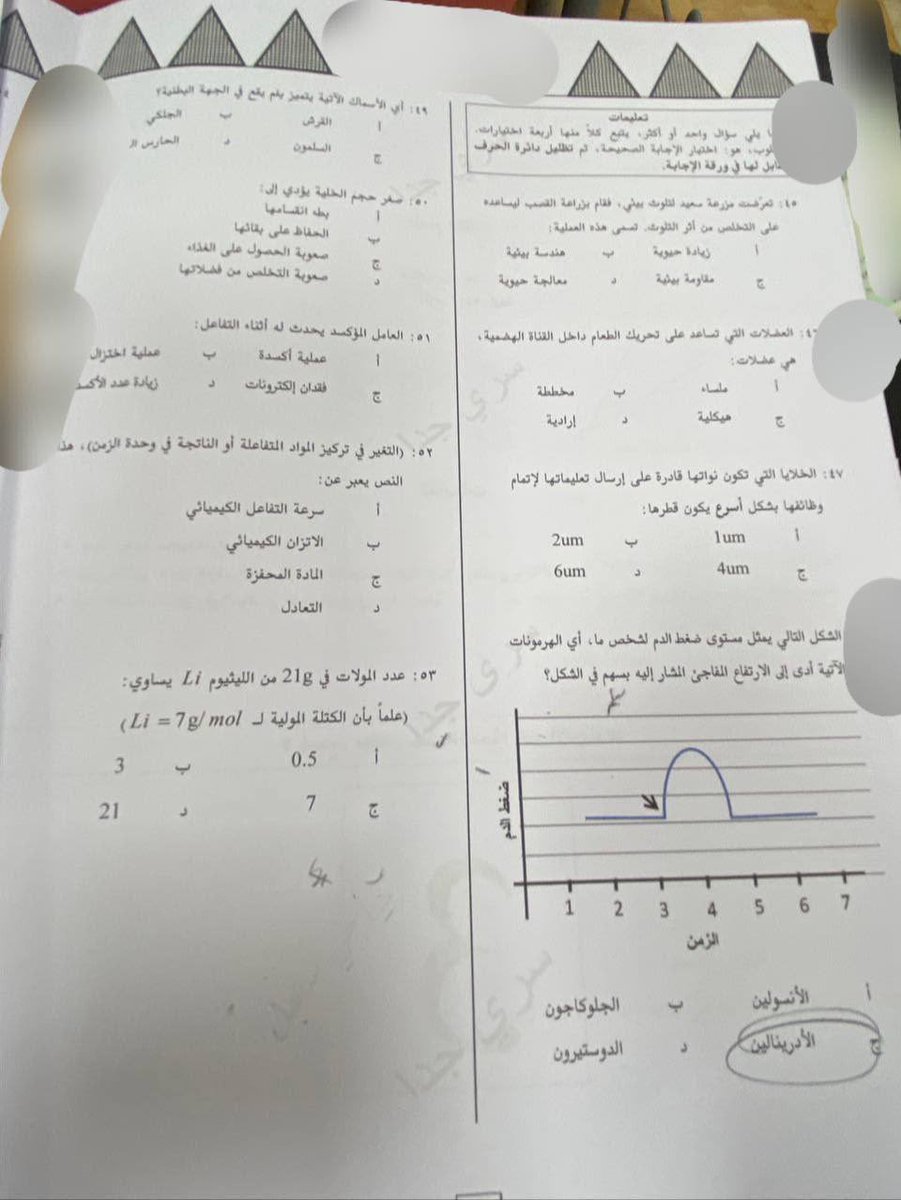 تعليمات
يلي سؤال واحد أو أكثر، يتبع كلاً منها أربعة اختيارات.
هو: اختيار الإجابة الصحيحة، ثم تظليل دائرة الحرف
لها في ورقة الإجابة.
٤٥: تعرّضت مزرعة سعيد لتلوث بيئي، فقام بزراعة القصب ليساعده
على التخلص من أثر التلوث. تسمى هذه العملية:
أ زيادة حيوية ب هندسة بيئية
ج مقاومة بيئية د معالجة حيوية
العضلات التي تساعد على تحريك الطعام داخل القناة الهضمية،
هي عضلات:
أ ملساء ب مخططة
ج هيكلية د إرادية
٤٧: الخلايا التي تكون نواتها قادرة على إرسال تعليماتها لإتمام
وظائفها بشكل أسرع يكون قطرها:
أ 1um ب 2um
ج 4um د 6um
الشكل التالي يمثل مستوى ضغط الدم لشخص ما، أي الهرمونات
الآتية أدى إلى الارتفاع المفاجئ المشار إليه بسهم في الشكل؟
ضغط الدم
1 2 3 4 5 6 7
الزمن
أ الأنسولين ب الجلوكاجون
ج الأدرينالين د الدوستيرون
٤٩: أي الأسماك الآتية يتميز بفم يقع في الجهة البطنية؟
أ القرش ب الجلكي
ج السلمون د الحارس
٥٠: صغر حجم الخلية يؤدي إلى:
أ بطء انقسامها
ب الحفاظ على بقائها
ج صعوبة الحصول على الغذاء
د صعوبة التخلص من فضلاتها
٥١: العامل المؤكسد يحدث له أثناء التفاعل:
أ عملية أكسدة ب عملية اختزال
ج فقدان إلكترونات د زيادة عدد
٥٢: (التغير في تركيز المواد المتفاعلة أو الناتجة في وحدة الزمن)، هذا
النص يعبر عن:
أ سرعة التفاعل الكيميائي
ب الاتزان الكيميائي
ج المادة المحفزة
د التعادل
٥٣: عدد المولات في 21g من الليثيوم Li يساوي:
(علماً بأن الكتلة المولية لـ Li = 7g/mol)
أ 0.5 ب 3
ج 7 د 21
سري جدا
سري جدا
سري جدا